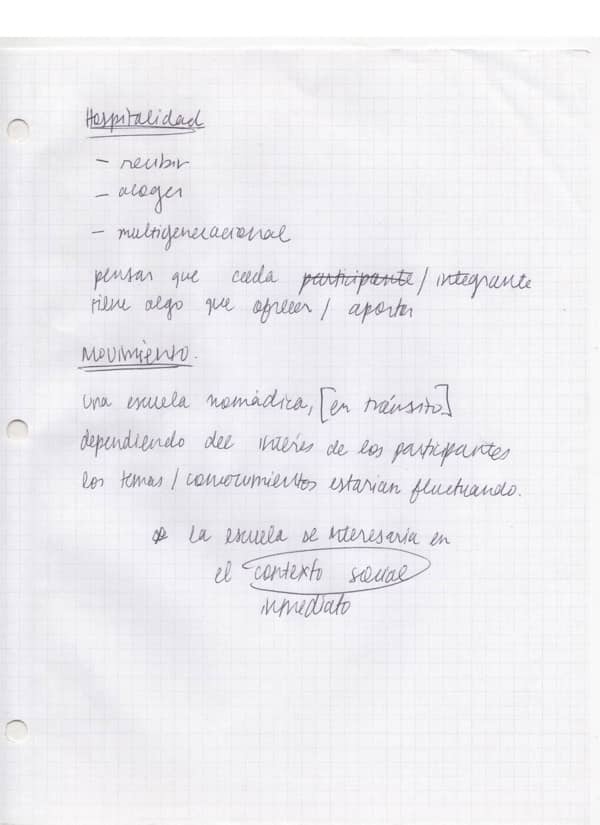 Hospitalidad
- recibir
- acoger
- multigeneracional
pensar que cada participante / integrante
tiene algo que ofrecer / aportar
Movimiento.
una escuela nomádica, [en tránsito]
dependiendo del interés de los participantes
los temas / conocimientos estarían fluctuando.
* La escuela se interesaría en
el contexto social
inmediato